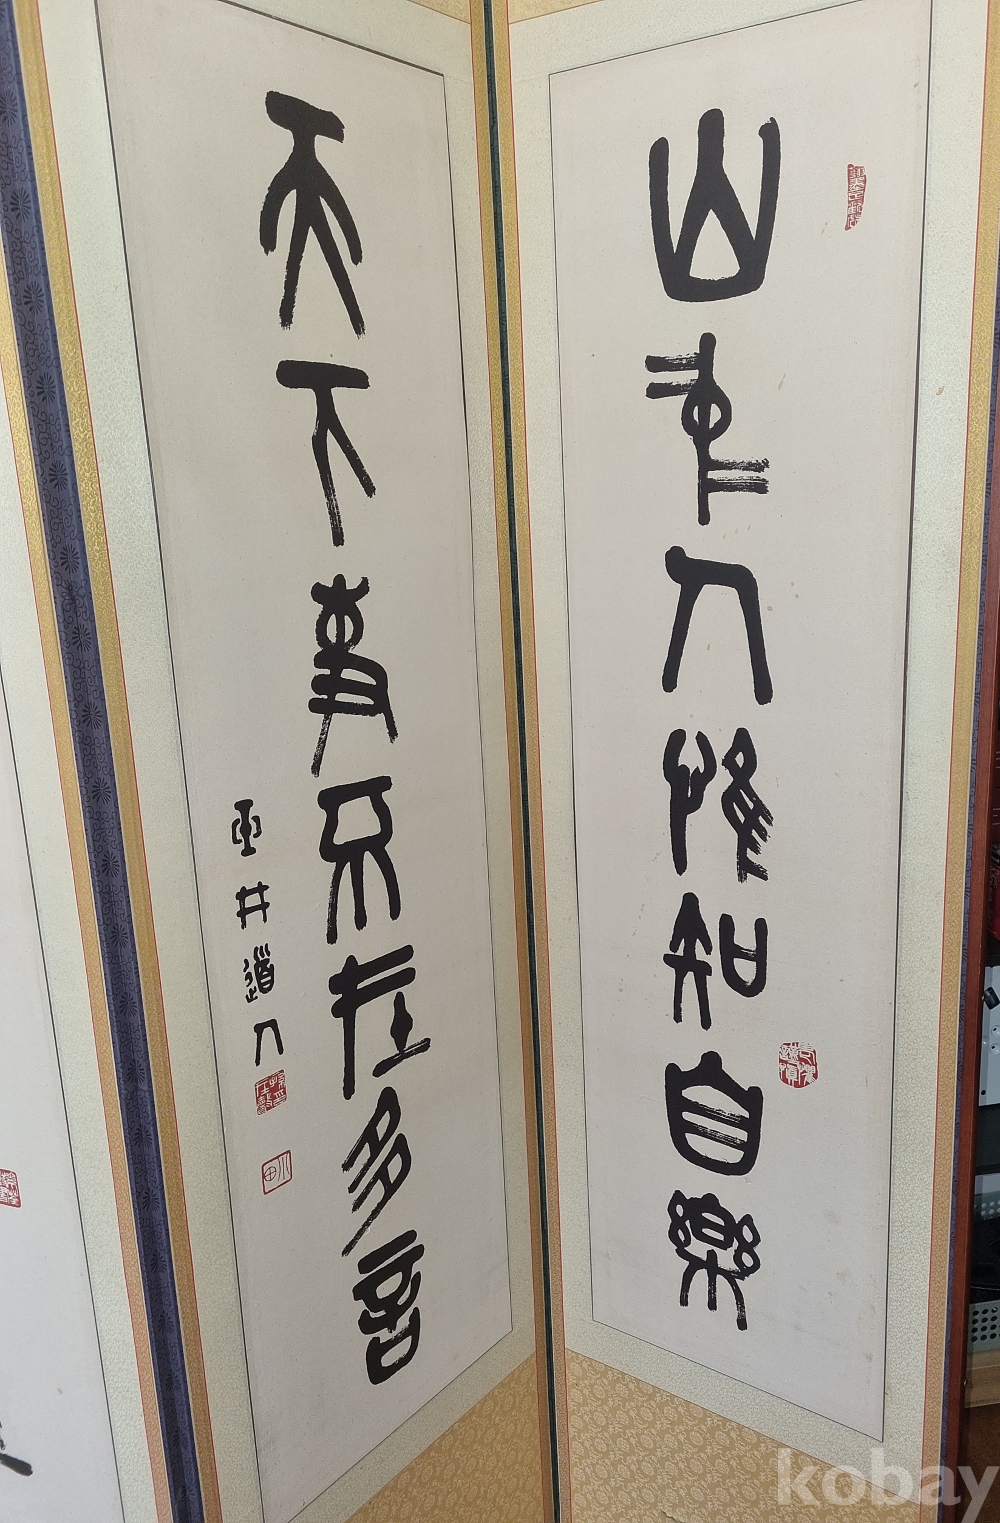 山中人惟知自樂
天下事不在多言
井道人
kobay